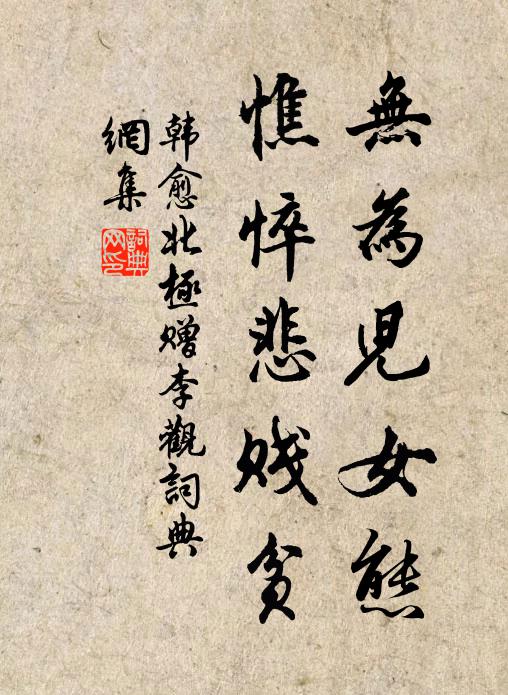 無為兒女態
憔悴悲贱貧
韩愈北極赠李觀詞典
網集
詞典網印